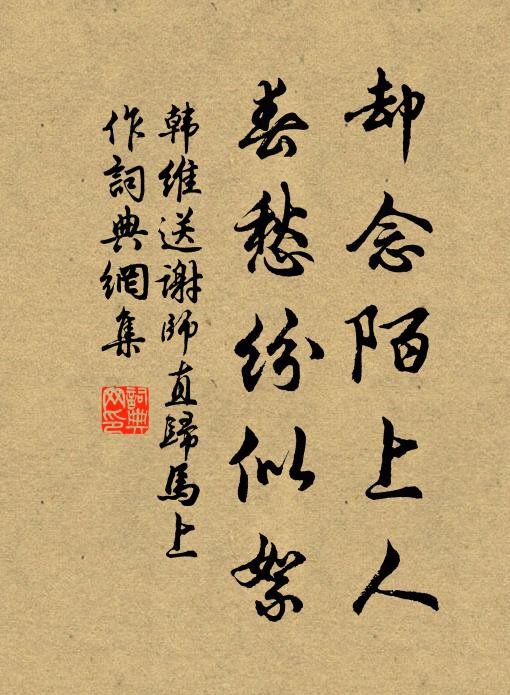 却念陌上人
春愁纷似絮
韩維送谢師直歸馬上
作詞典網集
詞典
网印